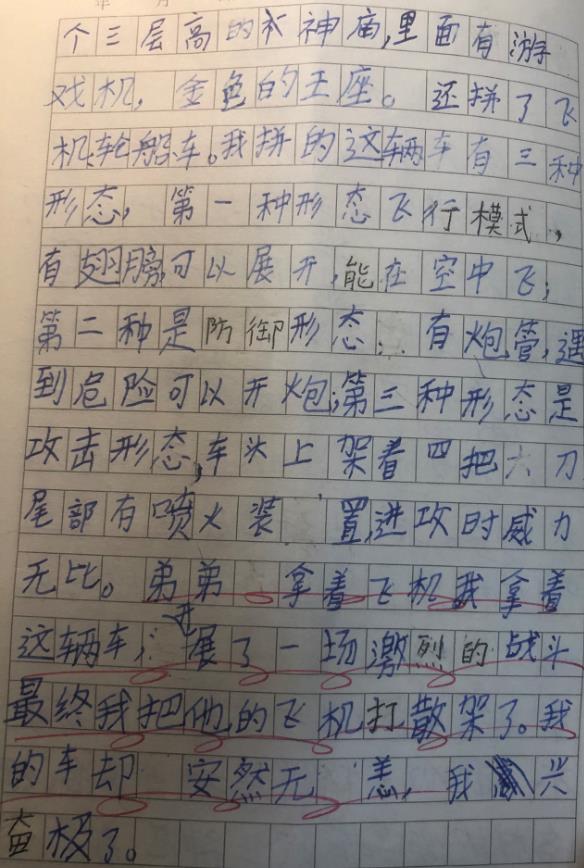 个三层高的神庙,里面有游
戏机,金色的王座。还拼了飞
机、轮船、车。我拼的这辆车有三种
形态,第一种形态飞行模式,
有翅膀,可以展开,能在空中飞;
第二种是防御形态;有炮管,遇
到危险可以开炮;第三种形态是
攻击形态,车头上架着四把大刀
尾部有喷火装置,进攻时威力
无比。弟弟拿着飞机我拿着
这辆车;开展了一场激烈的战斗
最终我把他的飞机打散架了。我
的车却安然无恙,我兴
奋极了。